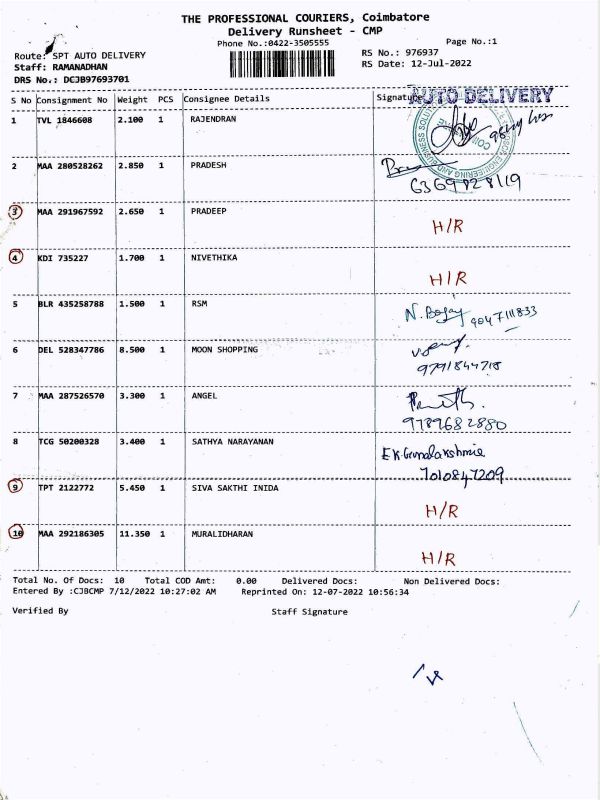 THE PROFESSIONAL COURIERS, Coimbatore
Delivery Runsheet - CMP
Phone No.:0422-3505555
Page No.:1
Route: SPT AUTO DELIVERY
RS No.: 976937
Staff: RAMANADHAN
RS Date: 12-Jul-2022
DRS No.: DCJB97693701
S No Consignment No Weight PCS Consignee Details Signature
AUTO DELIVERY
1 TVL 1846608 2.100 1 RAJENDRAN
2 MAA 280528262 2.850 1 PRADESH
6369828119
3 MAA 291967592 2.650 1 PRADEEP
H/R
4 KDI 735227 1.700 1 NIVETHIKA
H/R
5 BLR 435258788 1.500 1 RSM
9047111833
6 DEL 528347786 8.500 1 MOON SHOPPING
9791844718
7 MAA 287526570 3.300 1 ANGEL
9789682880
8 TCG 50200328 3.400 1 SATHYA NARAYANAN
7010847209
9 TPT 2122772 5.450 1 SIVA SAKTHI INIDA
H/R
10 MAA 292186305 11.350 1 MURALIDHARAN
H/R
Total No. Of Docs: 10 Total COD Amt: 0.00 Delivered Docs: Non Delivered Docs:
Entered By :CJBCMP 7/12/2022 10:27:02 AM Reprinted On: 12-07-2022 10:56:34
Verified By Staff Signature